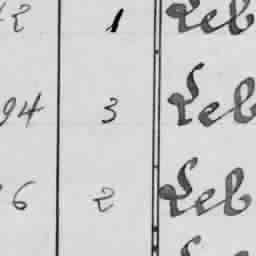 2 1 Leb
94 3 Leb
6 2 Leb